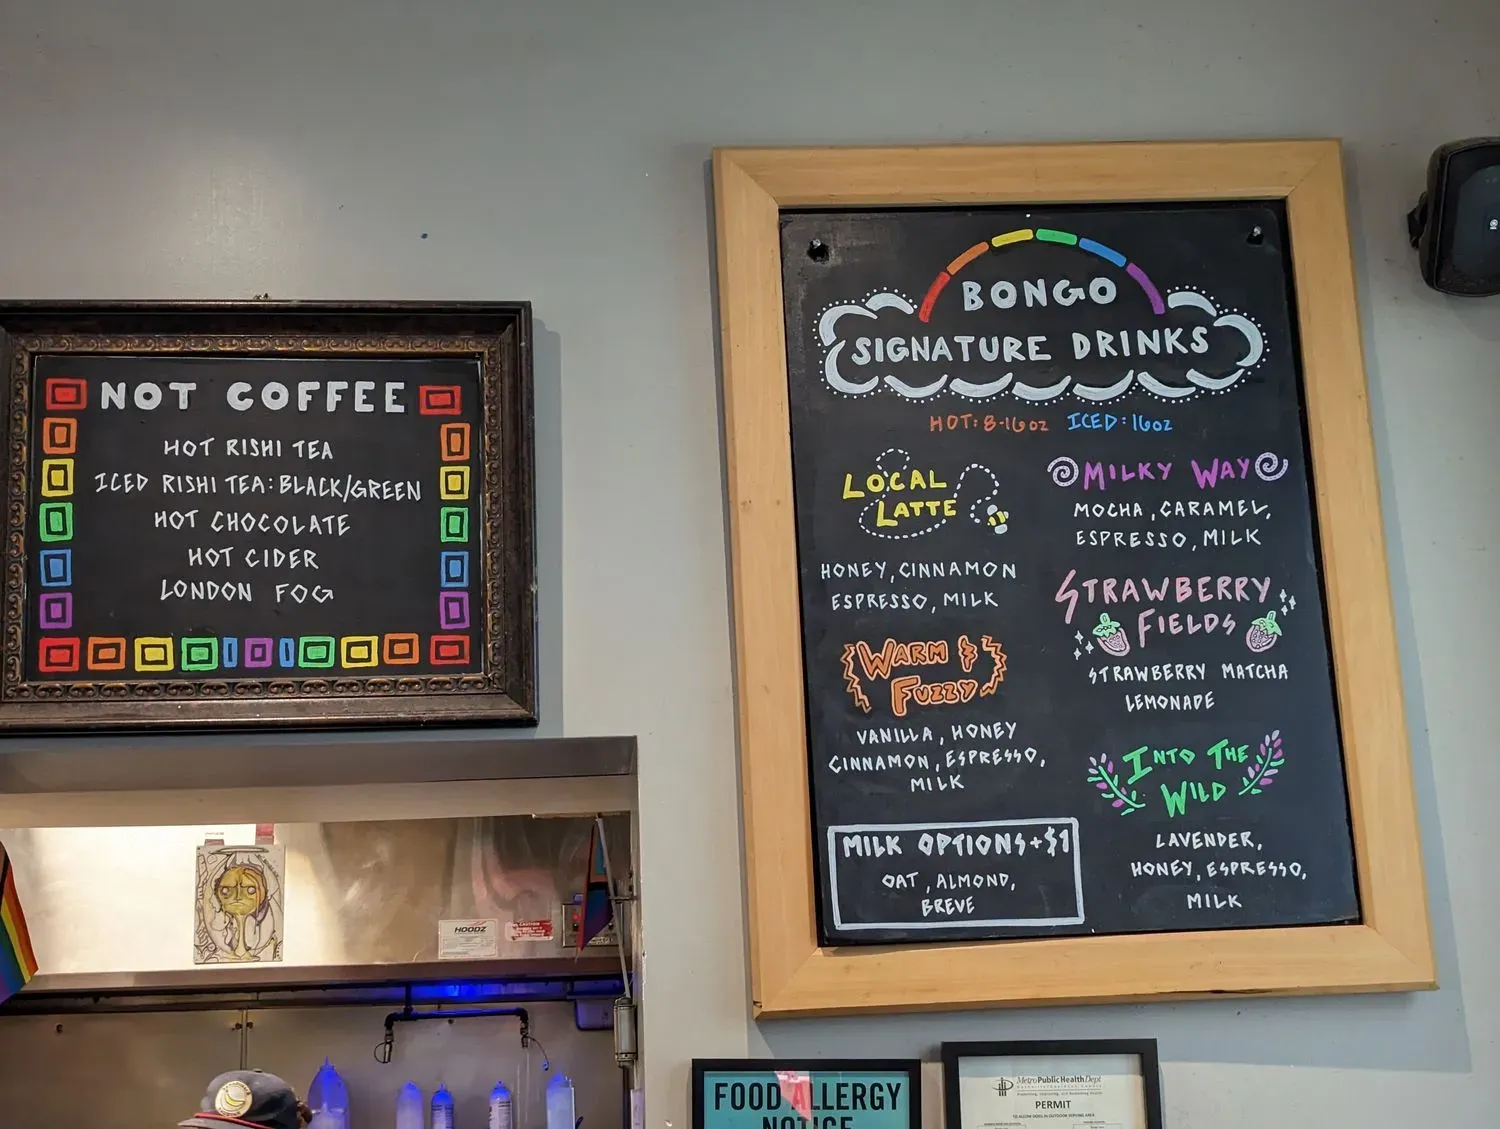 NOT COFFEE
HOT RISHI TEA
ICED RISHI TEA: BLACK/GREEN
HOT CHOCOLATE
HOT CIDER
LONDON FOG
BONGO
SIGNATURE DRINKS
HOT: 8-16oz ICED: 16oz
LOCAL
LATTE
HONEY, CINNAMON
ESPRESSO, MILK
WARM &
FUZZY
VANILLA, HONEY
CINNAMON, ESPRESSO,
MILK
MILK OPTIONS +$1
OAT, ALMOND,
BREVE
MILKY WAY
MOCHA, CARAMEL,
ESPRESSO, MILK
STRAWBERRY
FIELDS
STRAWBERRY MATCHA
LEMONADE
INTO THE
WILD
LAVENDER,
HONEY, ESPRESSO,
MILK
HOODZ
CAUTION
FOOD ALLERGY
NOTICE
Metro Public Health Dept
PERMIT
TO ALLOW DOGS IN OUTDOOR SERVING AREA